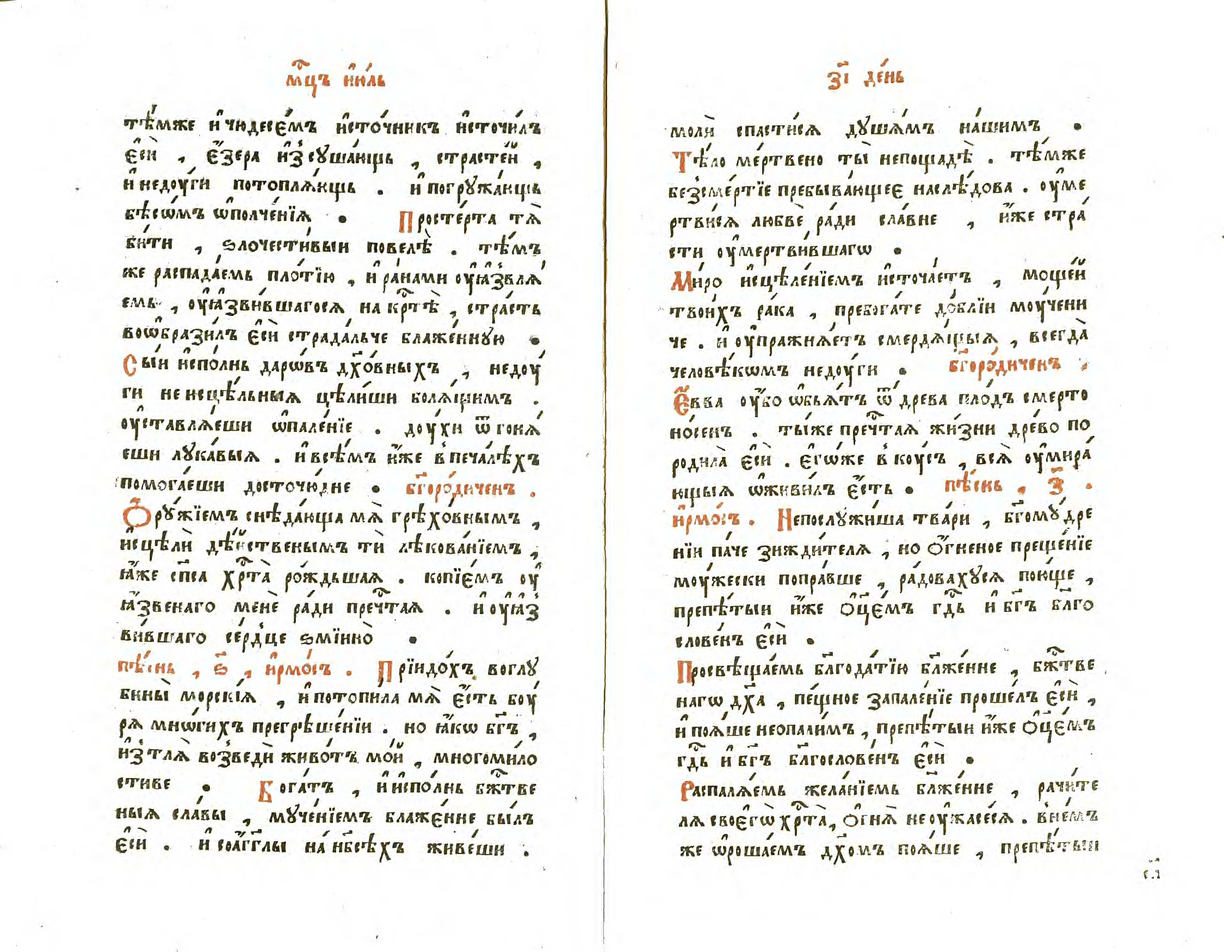 мⷭ҇цъ і҆ю́ль
тѣ́мже и҆ чюдесе́мъ и҆сто́чникъ и҆сточи́лъ
є҆сѝ , є҆́зера и҆зсꙋша́ющь , страсте́й ,
и҆ недоу́ги потопля́ющь . и҆ погрꙋжа́ющь
бѣсѡ́мъ ѡ҆полче́нїѧ . Просте́рта тѧ̀
би́ти , ѕлочести́выи повелѣ̀ . тѣ́мъ
же распада́емь пло́тїю , и҆ ра́нами оу҆ѧзвлѧ́
емь , оу҆ѧзви́вшагосѧ на крⷭ҇тѣ̀ , стра́сть
воѡбрази́лъ є҆сѝ страда́льче блаже́ннꙋю .
Сы́и и҆спо́лнь даро́въ дх҃о́вныхъ , недоу́
ги неисцѣ́льныѧ цѣли́ши болѧ́щимъ .
оу҆ставлѧ́еши ѡ҆пале́нїе . доу́хи ѿгонѧ́
еши лꙋка́выѧ . и҆ всѣ́мъ и҆́же в печа́лѣхъ
помога́еши досточю́дне . бг҃оро́диченъ .
Ѻ҆рꙋ́жїемъ снѣ́дающа мѧ̀ грѣхо́внымъ ,
и҆сцѣлѝ дѣ́йственымъ ти̑ лѣкова́нїемъ ,
ꙗ҆́же сп҃са хрⷭ҇та̀ ро́ждьшаѧ . копїе́мъ оу҆
ѧ҆зве́наго менѐ ра́ди пречⷭ҇таѧ . и҆ оу҆ѧз
ви́вшаго се́рдце ѕмїино̀ .
пѣ́снь , ѕ҃ , і҆рмо́съ . Прїидо́хъ во глꙋ
бины̀ морскі́ѧ , и҆ потопи́ла мѧ̀ є҆́сть боу́
рѧ мно́гихъ прегрѣше́нїи . но ꙗ҆́кѡ бг҃ъ ,
и҆з тлѧ̀ возведѝ живо́тъ мо́й , многоми́ло
стиве . Бога́тъ , и҆ и҆спо́лнь бжⷭ҇тве
ныѧ сла́вы , мꙋче́нїемъ блаже́нне бы́лъ
є҆сѝ . и҆ со а҆́гг҃лы на нб҃сѣ́хъ живе́ши .
з҃і де́нь
молѝ спасти́сѧ дꙋша́мъ на́шимъ .
Тѣ́ло ме́ртвено ты̀ непощадѣ̀ . тѣ́мже
безсме́ртїе пребыва́ющеє наслѣ́дова . оу҆ме
ртви́сѧ любвѐ ра́ди сла́вне , и҆́же стра́
сти оу҆мертви́вшагѡ .
Мѵ́ро и҆сцѣле́нїемъ и҆сточа́етъ , моще́й
твои́хъ ра́ка , пребога́те до́блїи моу́чени
че . и҆ оу҆пражнѧ́етъ смердѧ́щыѧ , всегда̀
человѣ́кѡмъ недоу́ги . бг҃оро́диченъ .
Є҆́вва оу҆́бо ѡ҆бьѧ́тъ ѿ дре́ва пло́дъ смерто
но́сенъ . ты́же пречⷭ҇таѧ жи́зни дре́во по
роди́ла є҆сѝ . є҆гѡ́же в коу́съ , всѧ̀ оу҆мира́
ющыѧ ѡ҆живи́лъ є҆́сть . пѣ́снь , з҃ .
і҆рмо́съ . Непослꙋжи́ша тва́ри , бг҃омꙋ́дре
нїи па́че зижди́телѧ , но ѻ҆́гненое преще́нїе
моу́жески попра́вше , ра́довахꙋсѧ пою́ще ,
препѣ́тыи и҆́же ѻ҆ц҃е́мъ гдⷭ҇ь и҆ бг҃ъ бл҃го
слове́нъ є҆сѝ .
Просвѣща́емь бл҃года́тїю бл҃же́нне , бжⷭ҇тве
нагѡ дх҃а , пе́щное запале́нїе проше́лъ є҆сѝ ,
и҆ поѧ́ше неопали́мъ , препѣ́тыи и҆́же ѻ҆ц҃е́мъ
гдⷭ҇ь и҆ бг҃ъ бл҃гослове́нъ є҆сѝ .
Распалѧ́емь жела́нїемь бл҃же́нне , рачи́те
лѧ своегѡ̀ хрⷭ҇та̀ , ѻ҆гнѧ̀ неоу҆жасе́сѧ . в не́мъ
же ѡ҆роша́емъ дх҃омъ поѧ́ше , препѣ́тыи